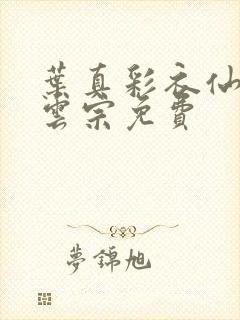 葉真彩衣仙
雲宗免費
夢錦旭